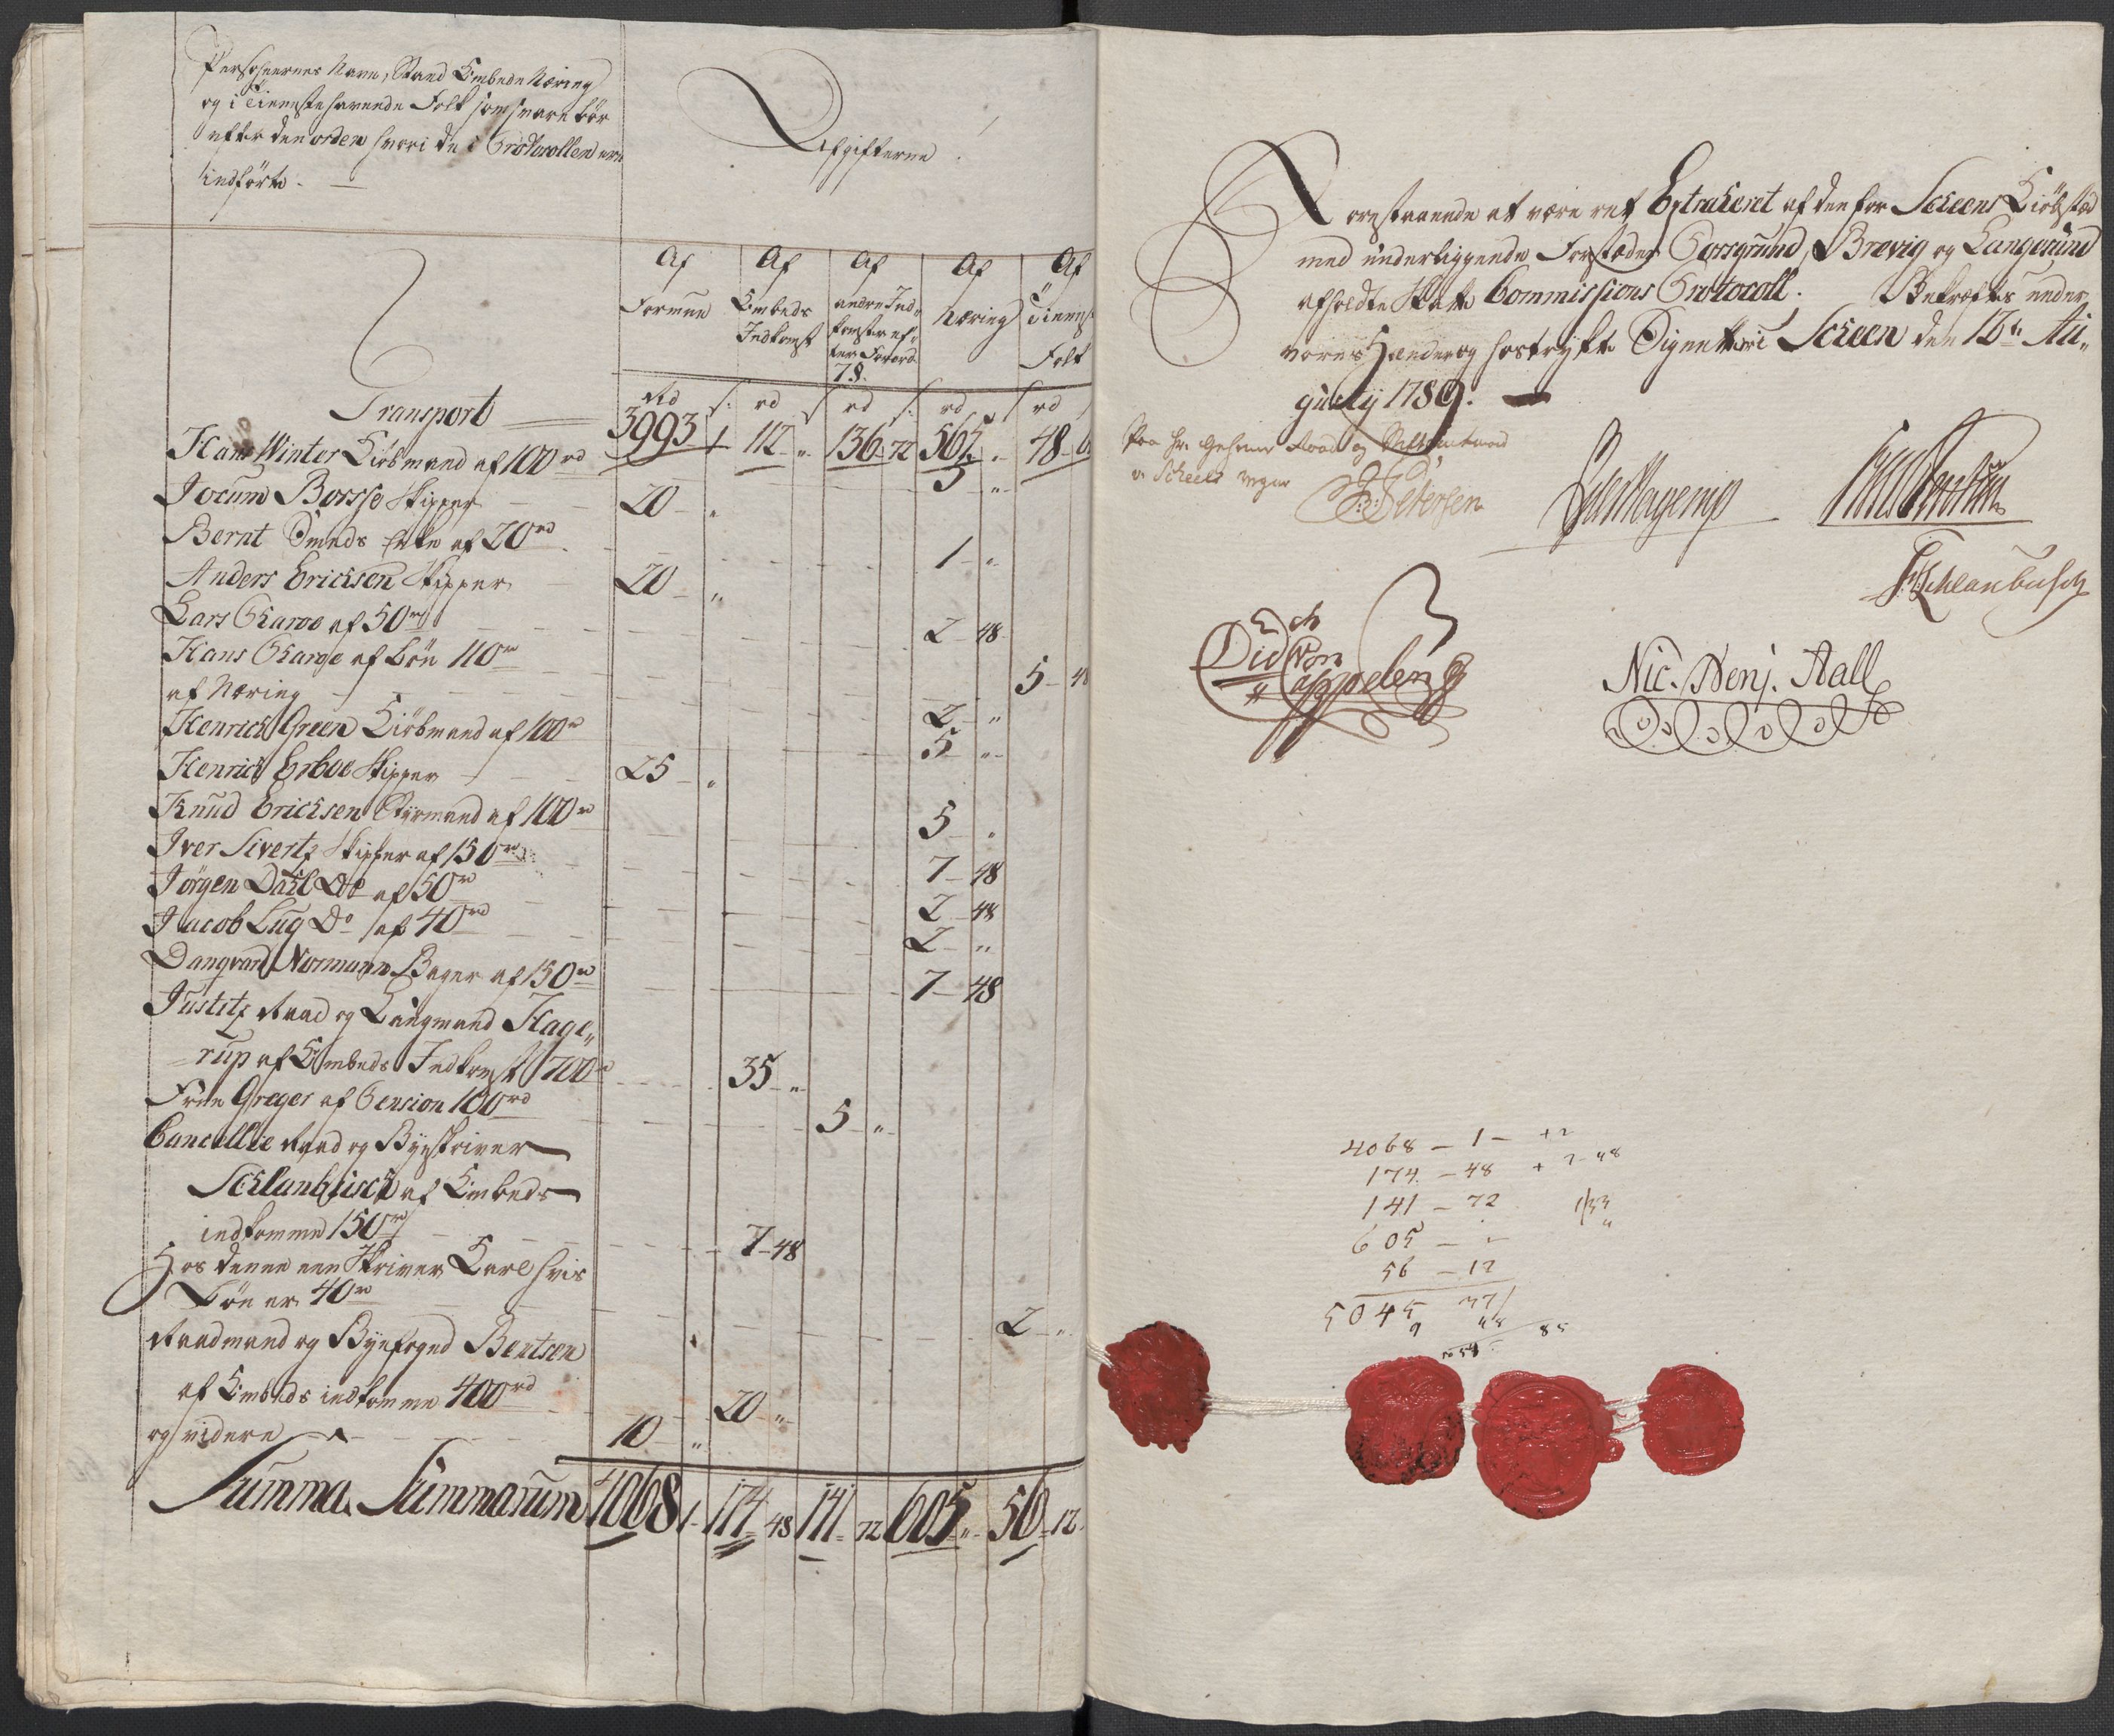 Personernes Navn, Stand Embede Næring
og i Tieneste havende Folk som svare bør
efter den orden hvori de i Protocollen ere
indførte. —
Afgifterne.
Af Formue
Af Embeds Indkomst
Af andre Ind„ komster ef„ ter Forord. 78.
Af Næring
Af Tieneste Folk
Rd s: rd s rd s: rd s rd
Transport — 3993 1 112 „ 136 72 565 „ 48 6
Hans Winter Kiøbmand af 100 rd 5 „
Jocum Borsse Skipper 20 „
Bernt Smeds Enke af 20 rd 1 „
Anders Ericksen Skipper 20 „
Lars Gharoe af 50 rd 2 48
Hans Gharoe af Løn 110 rd 5 48
af Næring 2 „
Henrich Green Kiøbmand af 100 rd 5 „
Henrich Erboe Skipper 25 „
Knud Ericksen Styrmand af 100 rd 5 „
Iver Sivertz Skipper af 150 rd 7 48
Jørgen Dahl Do af 50 rd 2 48
Jacob Lug Do af 40 rd 2 „
Danqvard Normann Bager af 150 rd 7 48
Justitz Raad og Laugmand Hage„
rup af Embeds Indkomst 700 rd 35 „
Frue Greger af Pension 100 rd 5 „
Cancellie Raad og Byeskriver
Schlanbusch af Embeds
indkomme 150 rd 7 48
Hos denne een Skriver Karl hvis
Løn er 40 rd 2 „
Raadmand og Byefoged Bentsen
af Embeds indkomme 400 rd 20 „
og videre 10 „
Summa Summarum 4068 1 174 48 141 72 605 „ 56 12
Forestaaende at være ret Extraheret af den for Scheens Kiøbstæd
med underliggende Forstæder Porsgrund, Brevig og Langesund
afholdte Skatte Commissions Protocoll. Bekræftes under
vores Hænder og hostrykte Signetter Scheen den 12te Au„
gusty 1789. —
Paa Hr. Geheime Raad og Stiftamtmand
v. Scheels vegne
Petersen
Hagerup
Bentsen
Schlanbusch
Did von Cappelen
Nic. Benj. Aall
4068 — 1 —
174 — 48 + 7 48
141 — 72
605 — „
56 — 12
5045 37
9 48 85
5054